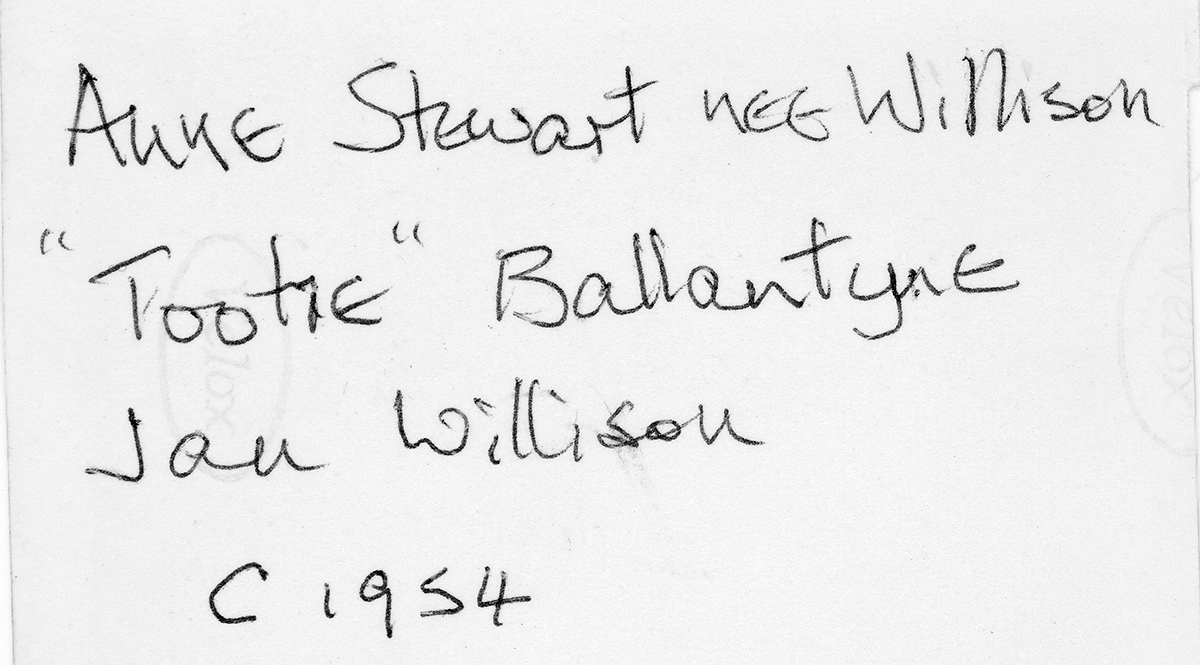 Anne Stewart nee Willison
"Tootie" Ballantyne
Jan Willison
C 1954
Velox
Velox